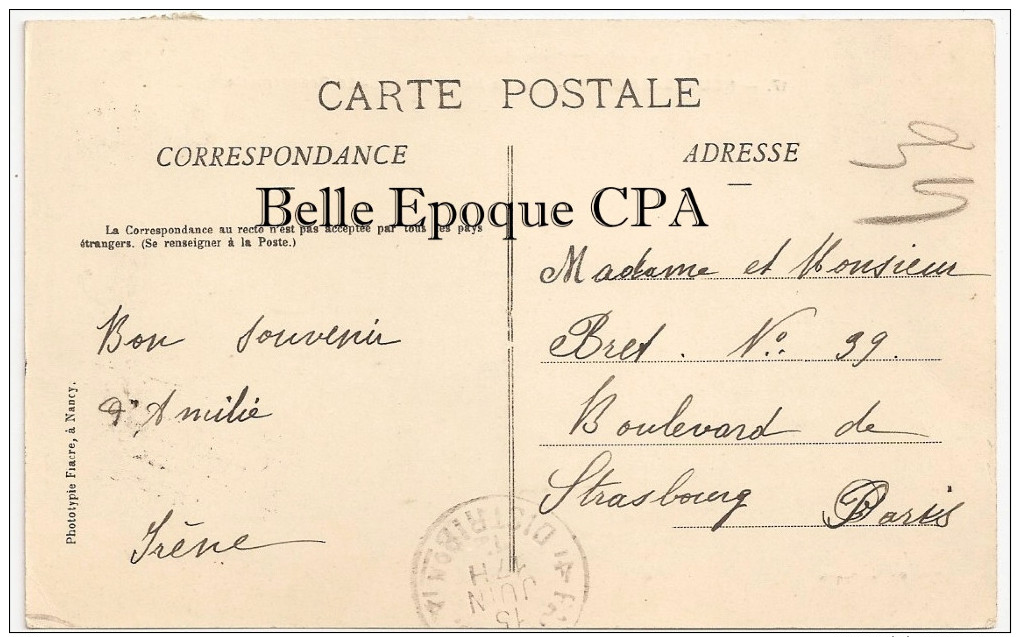 CARTE POSTALE
CORRESPONDANCE
ADRESSE
Belle Epoque CPA
La Correspondance au recto n'est pas acceptée par tous les pays
étrangers. (Se renseigner à la Poste.)
Bon souvenir
d'Amilié
Irène
Phototypie Fiacre, à Nancy.
Madame et Monsieur
Bret. No. 39.
Boulevard de
Strasbourg Paris
DISTRIBUTION
17 H
15
JUIN